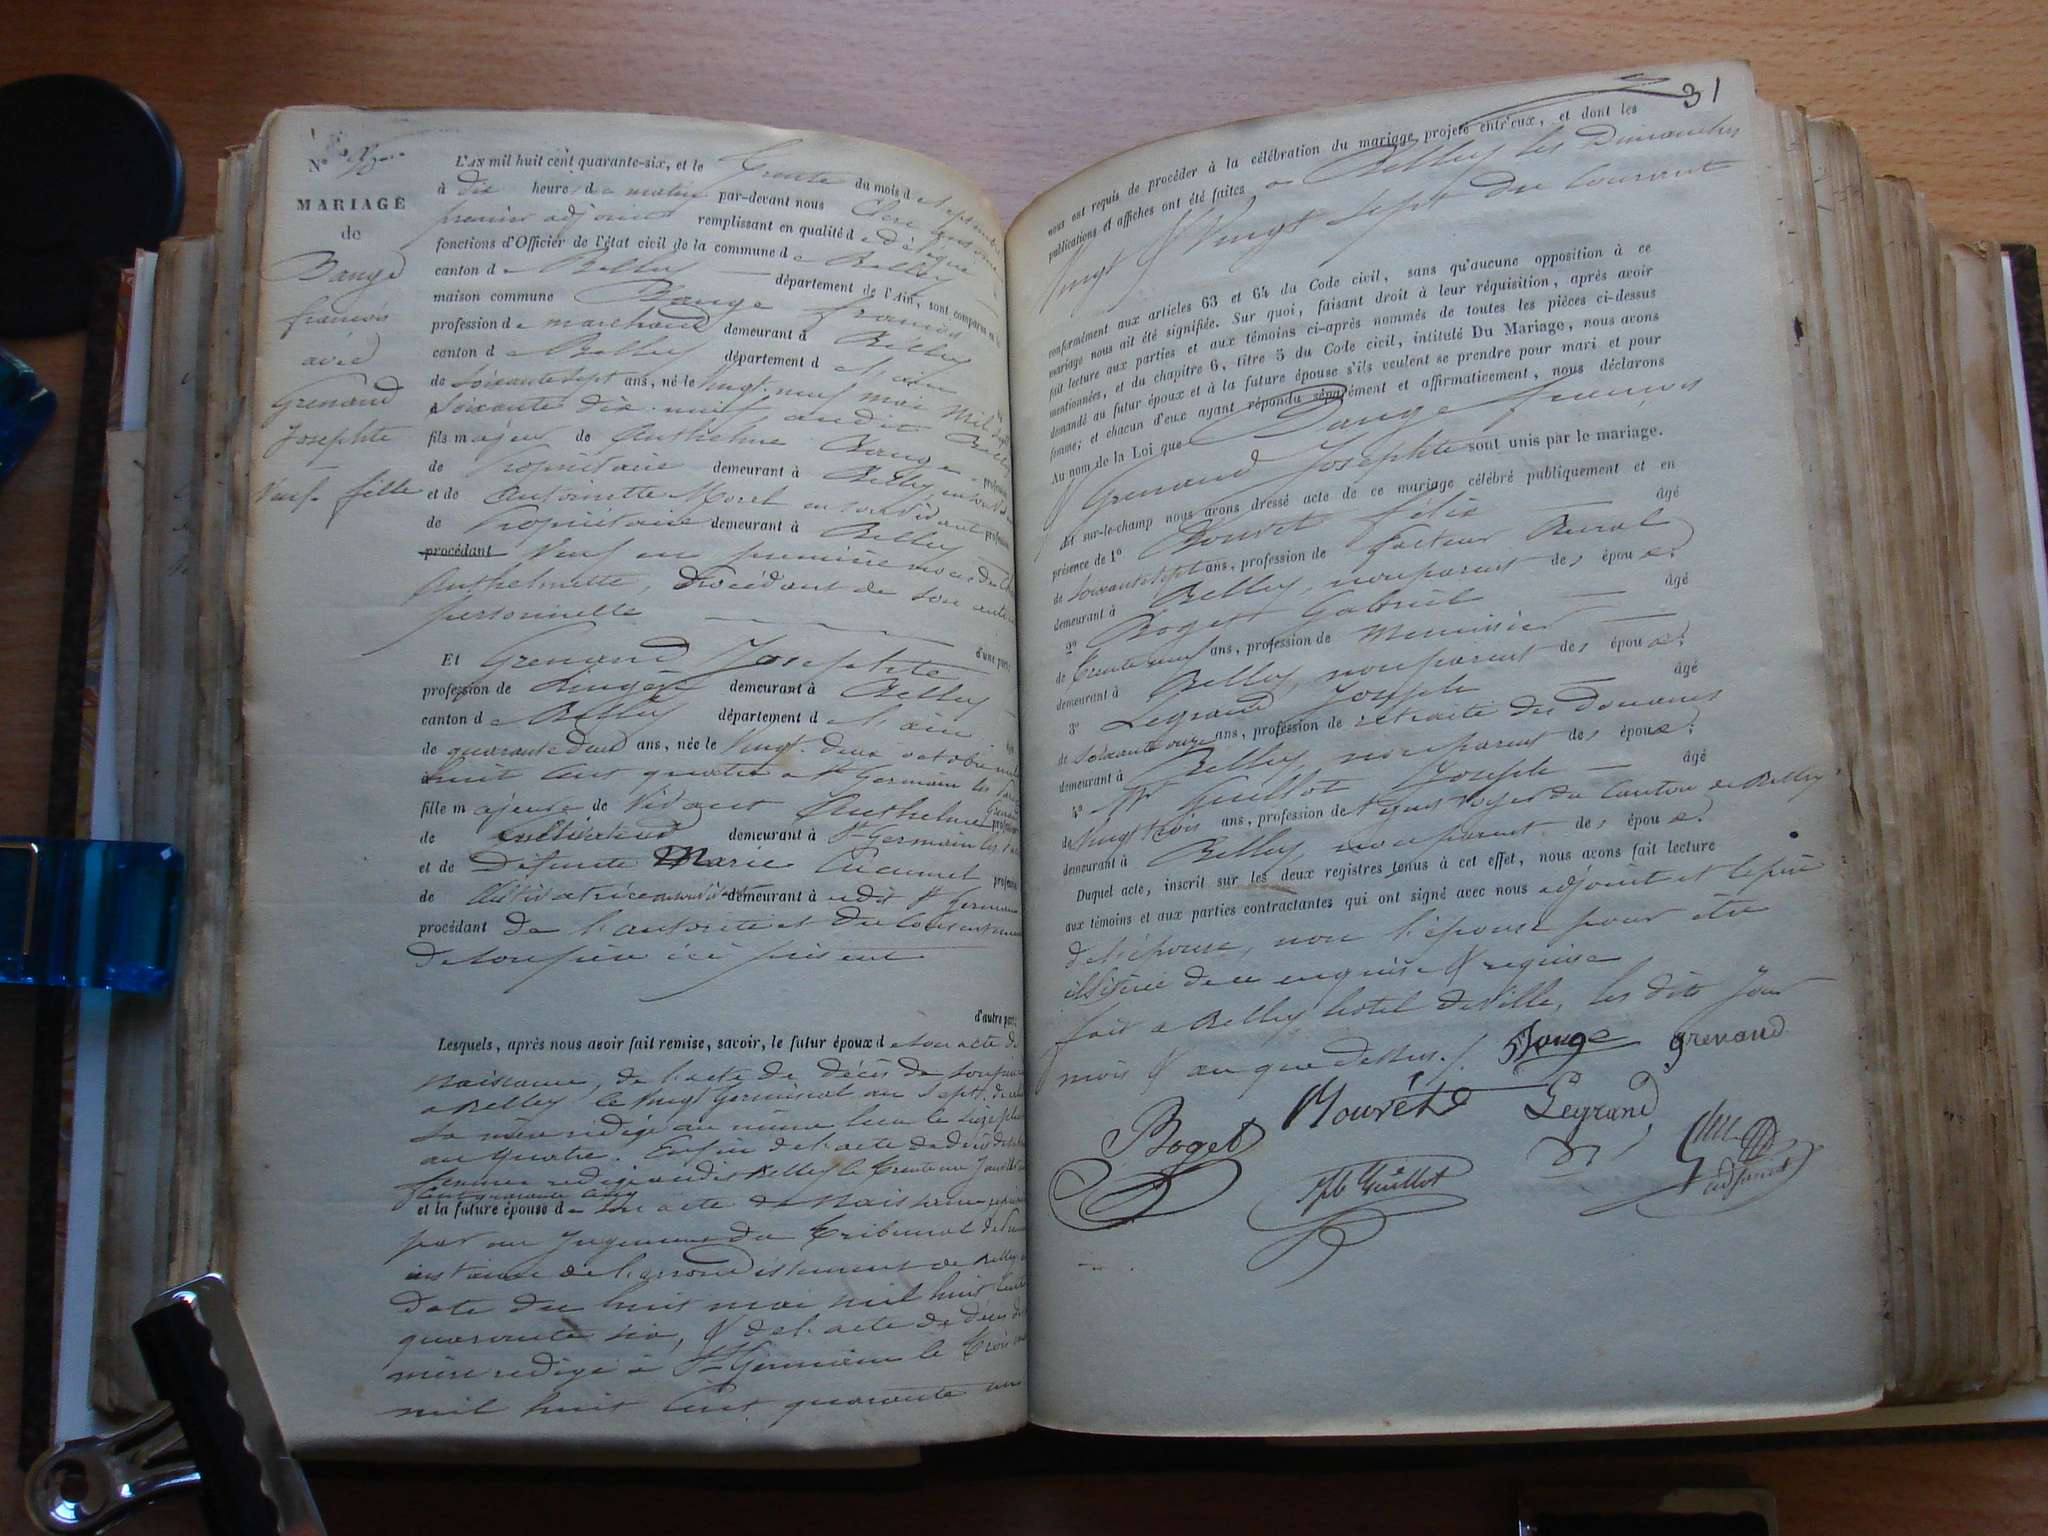 N°
MARIAGE
de
Bauge
françois
avec
Grenand
Josephte
Veuf - fille
L'AN mil huit cent quarante-six, et le trente du mois de septembre
à dix heures du matin par-devant nous
premier adjoint remplissant en qualité de délégué
fonctions d'Officier de l'état civil de la commune de Belley
canton de Belley département de l'Ain, sont comparus en la
maison commune Bauge françois
profession de marchand demeurant à Belley
canton de Belley département de l'ain
de soixante sept ans, né le vingt neuf mai mil sept
soixante dix-neuf audit Belley
fils majeur de Anthelme Bauge profession
de Propriétaire demeurant à Belley
et de Antoinette Morel en son vivant profession
de Propriétaire demeurant à Belley
procédant Veuf en première noces de
Anthelmette, procédant de son
personnelle
d'une part;
Et Grenand Josephte
profession de Lingère demeurant à Belley
canton de Belley département de l'ain
de quarante deux ans, née le Vingt-deux octobre mil
huit cent quatre a St Germain les
fille majeure de vivant Anthelme Grenand profession
de cultivateur demeurant à St Germain les
et de Défunte Marie Cucumel profession
de Cultivatrice demeurant à udit St Germain
procédant de l'autorité et du consentement
de son père ici présent
d'autre part;
Lesquels, après nous avoir fait remise, savoir, le futur époux de son acte de
naissance, de l'acte de décès de son père
a Belley le vingt Germinal an sept, de celui de
sa mère rédigé au même lieu le
an quatre. Enfin de l'acte de décès de sa
femme rédigé audit Belley le trente un
cent quarante cinq
et la future épouse de son acte de naissance
par un Jugement du tribunal de
instance de l'arrondissement de Belley en
date du huit mai mil huit cent
quarante six, & de l'acte de décès de sa
mère rédigé à St Germain le trois
mil huit cent quarante un
31
nous est requis de procéder à la célébration du mariage projeté entr'eux, et dont les
publications et affiches ont été faites a Belley les Dimanches
Vingt & Vingt sept du Courant
conformément aux articles 63 et 64 du Code civil, sans qu'aucune opposition à ce
mariage nous ait été signifiée. Sur quoi, faisant droit à leur réquisition, après avoir
fait lecture aux parties et aux témoins ci-après nommés de toutes les pièces ci-dessus
mentionnées, et du chapitre 6, titre 5 du Code civil, intitulé Du Mariage, nous avons
demandé au futur époux et à la future épouse s'ils veulent se prendre pour mari et pour
femme; et chacun d'eux ayant répondu séparément et affirmativement, nous déclarons
Au nom de la Loi que Bauge françois
& Grenand Josephte sont unis par le mariage.
Et sur-le-champ nous avons dressé acte de ce mariage célébré publiquement et en
présence de 1° Bouvet félix âgé
de soixante sept ans, profession de facteur Rural
demeurant à Belley, non parent des époux.
2° Boget Gabriel âgé
de trente neuf ans, profession de Menuisier
demeurant à Belley, non parent des époux.
3° Legrand Joseph âgé
de soixante onze ans, profession de retraité des Douanes
demeurant à Belley non parent des époux.
4° Mr Guillot Joseph âgé
de Vingt trois ans, profession de agent voyer du Canton de Belley
demeurant à Belley, non parent des époux.
Duquel acte, inscrit sur les deux registres tenus à cet effet, nous avons fait lecture
aux témoins et aux parties contractantes qui ont signé avec nous adjoint et le père
de l'épouse, non l'épouse pour être
illitérée de ce enquise & requise
fait a Belley hotel de ville, les dits Jour
mois & an que dessus.
Bauge grenand
Boget Bouvet Legrand
Jph Guillot
adjoint